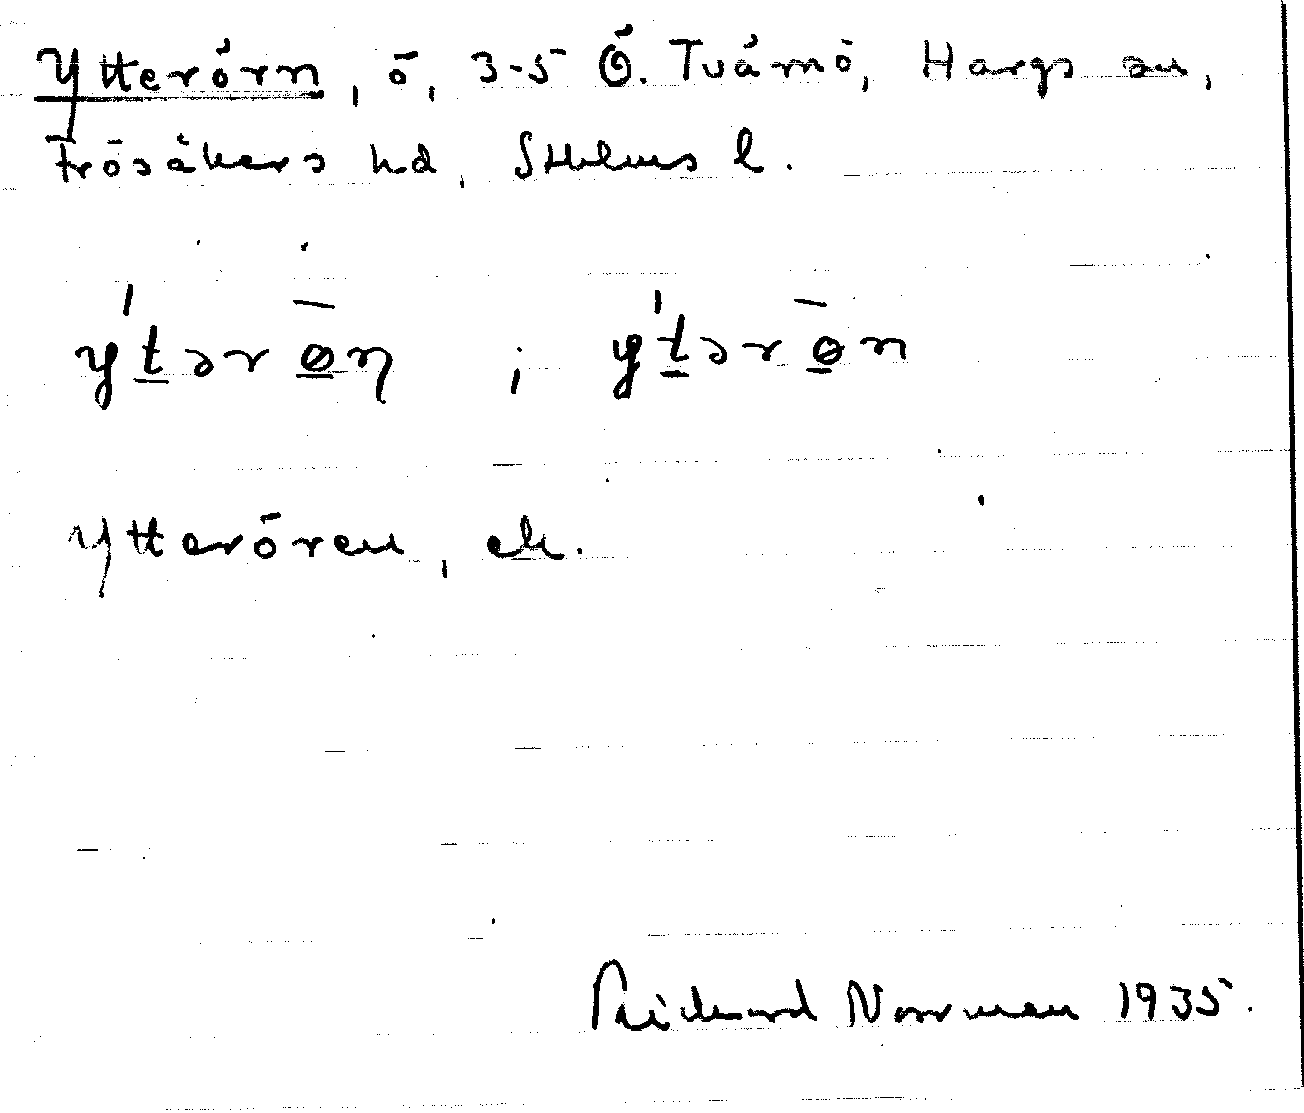 Ytterörn, ö, 3-5 Ö. Tvärnö, Hargs sn,
Frösåkers hd, Sthlms l.
y't̲ərø̲̄η ; y't̲ərø̲̄n
Ytterören, ek.
Richard Norrman 1935.